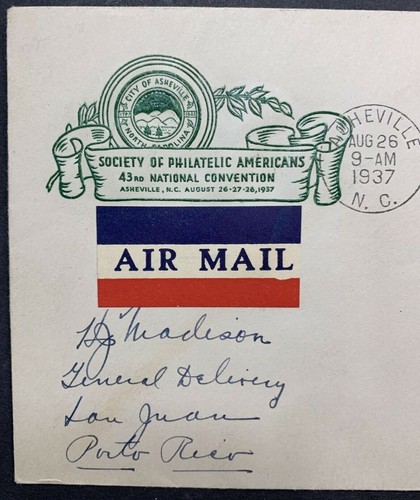 CITY OF ASHEVILLE
NORTH CAROLINA
SOCIETY OF PHILATELIC AMERICANS
43RD NATIONAL CONVENTION
ASHEVILLE, N.C. AUGUST 26-27-28, 1937
ASHEVILLE
AUG 26
9-AM
1937
N. C.
AIR MAIL
HJ Madison
General Delivery
San Juan
Porto Rico